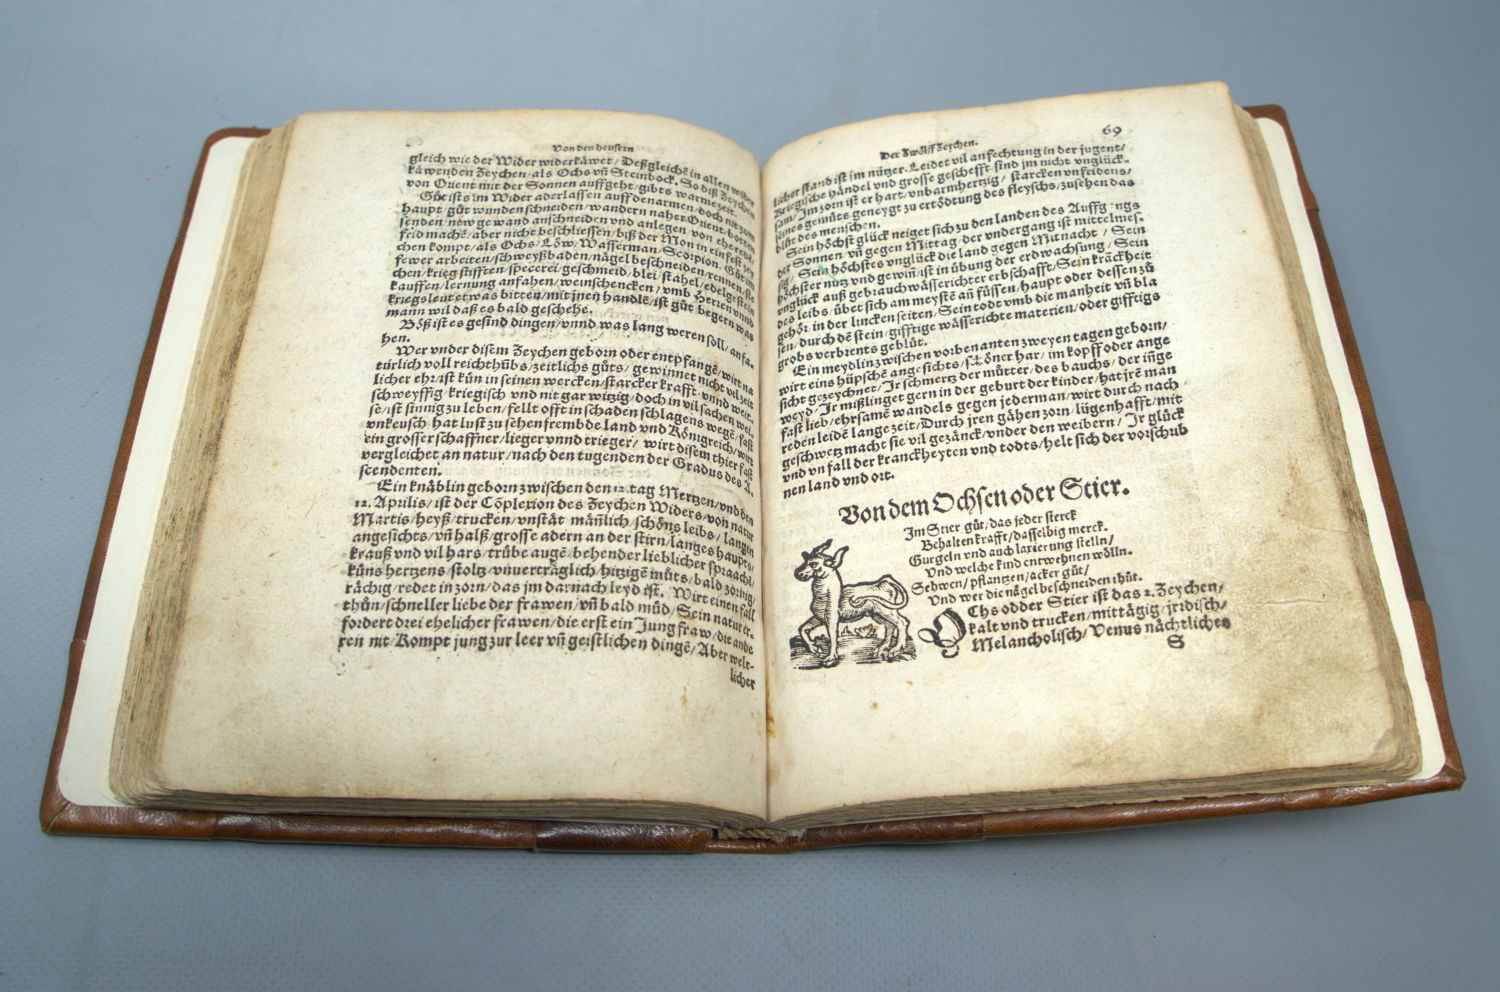 Von den heusern
gleich wie der Wider widerkåwet/ Deßgleichē in allen wider
kåwenden Zeychen/ als Ochs vñ Steinbock. So diß Zeychen
von Orient mit der Sonnen auffgeht/ gibts warme zeit.
Gůt ists im Wider aderlassen auff den armen/ doch nit zum
haupt/ gůt wunden schneiden/ wandern naher Orient/ botten
senden/ new gewand anschneiden vnd anlegen/ von ehe reden
frid machē/ aber nicht beschliessen/ biß der Mon in ein fest zey
chen kompt/ als Ochs/ Lôw/ Wasserman/ Scorpion. Gůt im
fewer arbeiten/ schweyßbaden/ någel beschneiden/
chen/ krieg stifften/ specerei/ geschmeid/ blei/ stahel/ edelgestein
kauffen/ lernung anfahen/ weinschencken/ vmb Herren vnnd
kriegsleut etwas bitten/ mit jnen handlē/ ist gůt begern was
mann wil daß es bald geschehe.
Bôß ist es gesind dingen/ vnnd was lang weren soll/ anfa-
hen.
Wer vnder disem Zeychen geborn oder entpfangē/ wirt na
türlich voll reichthůbs/ zeitlichs gůts/ gewinnet nicht vil zeit
licher ehr/ ist kůn in seinen wercken/ starcker krafft/ vnnd weit
schweyffig/ kriegisch vnd nit gar witzig/ doch in vil sachen wei-
se/ ist sinnig zu leben/ fellt offt in schaden schlagens wegē/ fast
vnkeusch/ hat lust zu sehen frembde land vnd Kônigreich/ wirt
ein grosser schaffner/ lieger vnnd krieger/ wirt disem thier fast
vergleichet an natur/ nach den tugenden der Gradus des A-
scendenten.
Ein knåblin geborn zwischen den 12. tag Mertzen/ vnd den
12. Aprilis/ ist der Cõplexion des Zeychen Widers/ von natur
Martis/ heyß/ trucken/ vnståt/ mãnlich/ schôns leibs/ langen
angesichts/ vñ halß/ grosse adern an der stirn/ langes haupts/
krauß vnd vil hars/ trůbe augē/ behender lieblicher spraach/
kůns hertzens/ stoltz/ vnuertråglich/ hitzigē můts/ bald zornig/
råchig/ redet in zorn/ das im darnach leyd ist. Wirt einen fall
thůn/ schneller liebe der frawen/ vñ bald můd/ Sein natur er-
fordert drei ehelicher frawen/ die erst ein Jungfraw/ die ande
ren nit/ Kompt jung zur leer vñ geistlichen dingē/ Aber welt-
licher
69
Der Zwôlff Zeychen.
licher stand ist im nützer. Leidet vil anfechtung in der jugent/
Kriegische håndel vnd grosse geschefft sind jm nicht vnglück-
sam/ Im zorn ist er hart/ vnbarmhertzig/ starcken vnfridens/
seines gemůts geneygt zu ertôdtung des fleyschs/ zusehen das
blůt des menschen.
Sein hôchst glück neiget sich zu den landen des Auffgangs
der Sonnen/ vñ gegen Mittag/ der vndergang ist mittelmes-
sig/ Sein hôchstes vnglück die land gegen Mitnacht/ Sein
hôchster nutz vnd gewin/ ist in übung der erdwachsung/ Sein
vnglück auß gebrauch wåsserichter erbschafft/ Sein kråckheit
des leibs/ übet sich am meystē an füssen/ haupt oder dessen zů
gehôr/ in der lincken seiten/ Sein todt vmb die manheit vñ bla
sen/ durch dē stein/ gifftige wåsserichte materien/ oder gifftigs
grobs verbrents geblůt.
Ein meydlin zwischen vorbenanten zweyen tagen geborn/
wirt eins hüpschē angesichts/ schôner har/ im kopff oder ange
sicht gezeychnet/ Jr schmertz der můtter/ des bauchs/ der jñge
weyd/ Jr mißlinget gern in der geburt der kinder/ hat jrē man
fast lieb/ ehrsamē wandels gegen jederman/ wirt durch nach
reden leidē lange zeit/ Durch jren gåhen zorn/ lügenhafft/ mit
geschwetz macht sie vil gezånck/ vnder den weibern/ Jr glück
vnd vn fall der kranckheyten vnd todts/ helt sich der vorschrib
nen land vnd ort.
Von dem Ochsen oder Stier.
Im Stier gůt/ das jeder sterck
Behalten krafft/ dasselbig merck.
Gurgeln vnd auch laxierung stelln/
Vnd welche kind entwehnen wôlln.
Sehwen/ pflantzen/ åcker gůt/
Vnd wer die någel beschneiden thůt.
OChs odder Stier ist das 2. Zeychen/
kalt vnd trucken/ mittågig/ jrdisch/
Melancholisch/ Venus nåchtliches
S